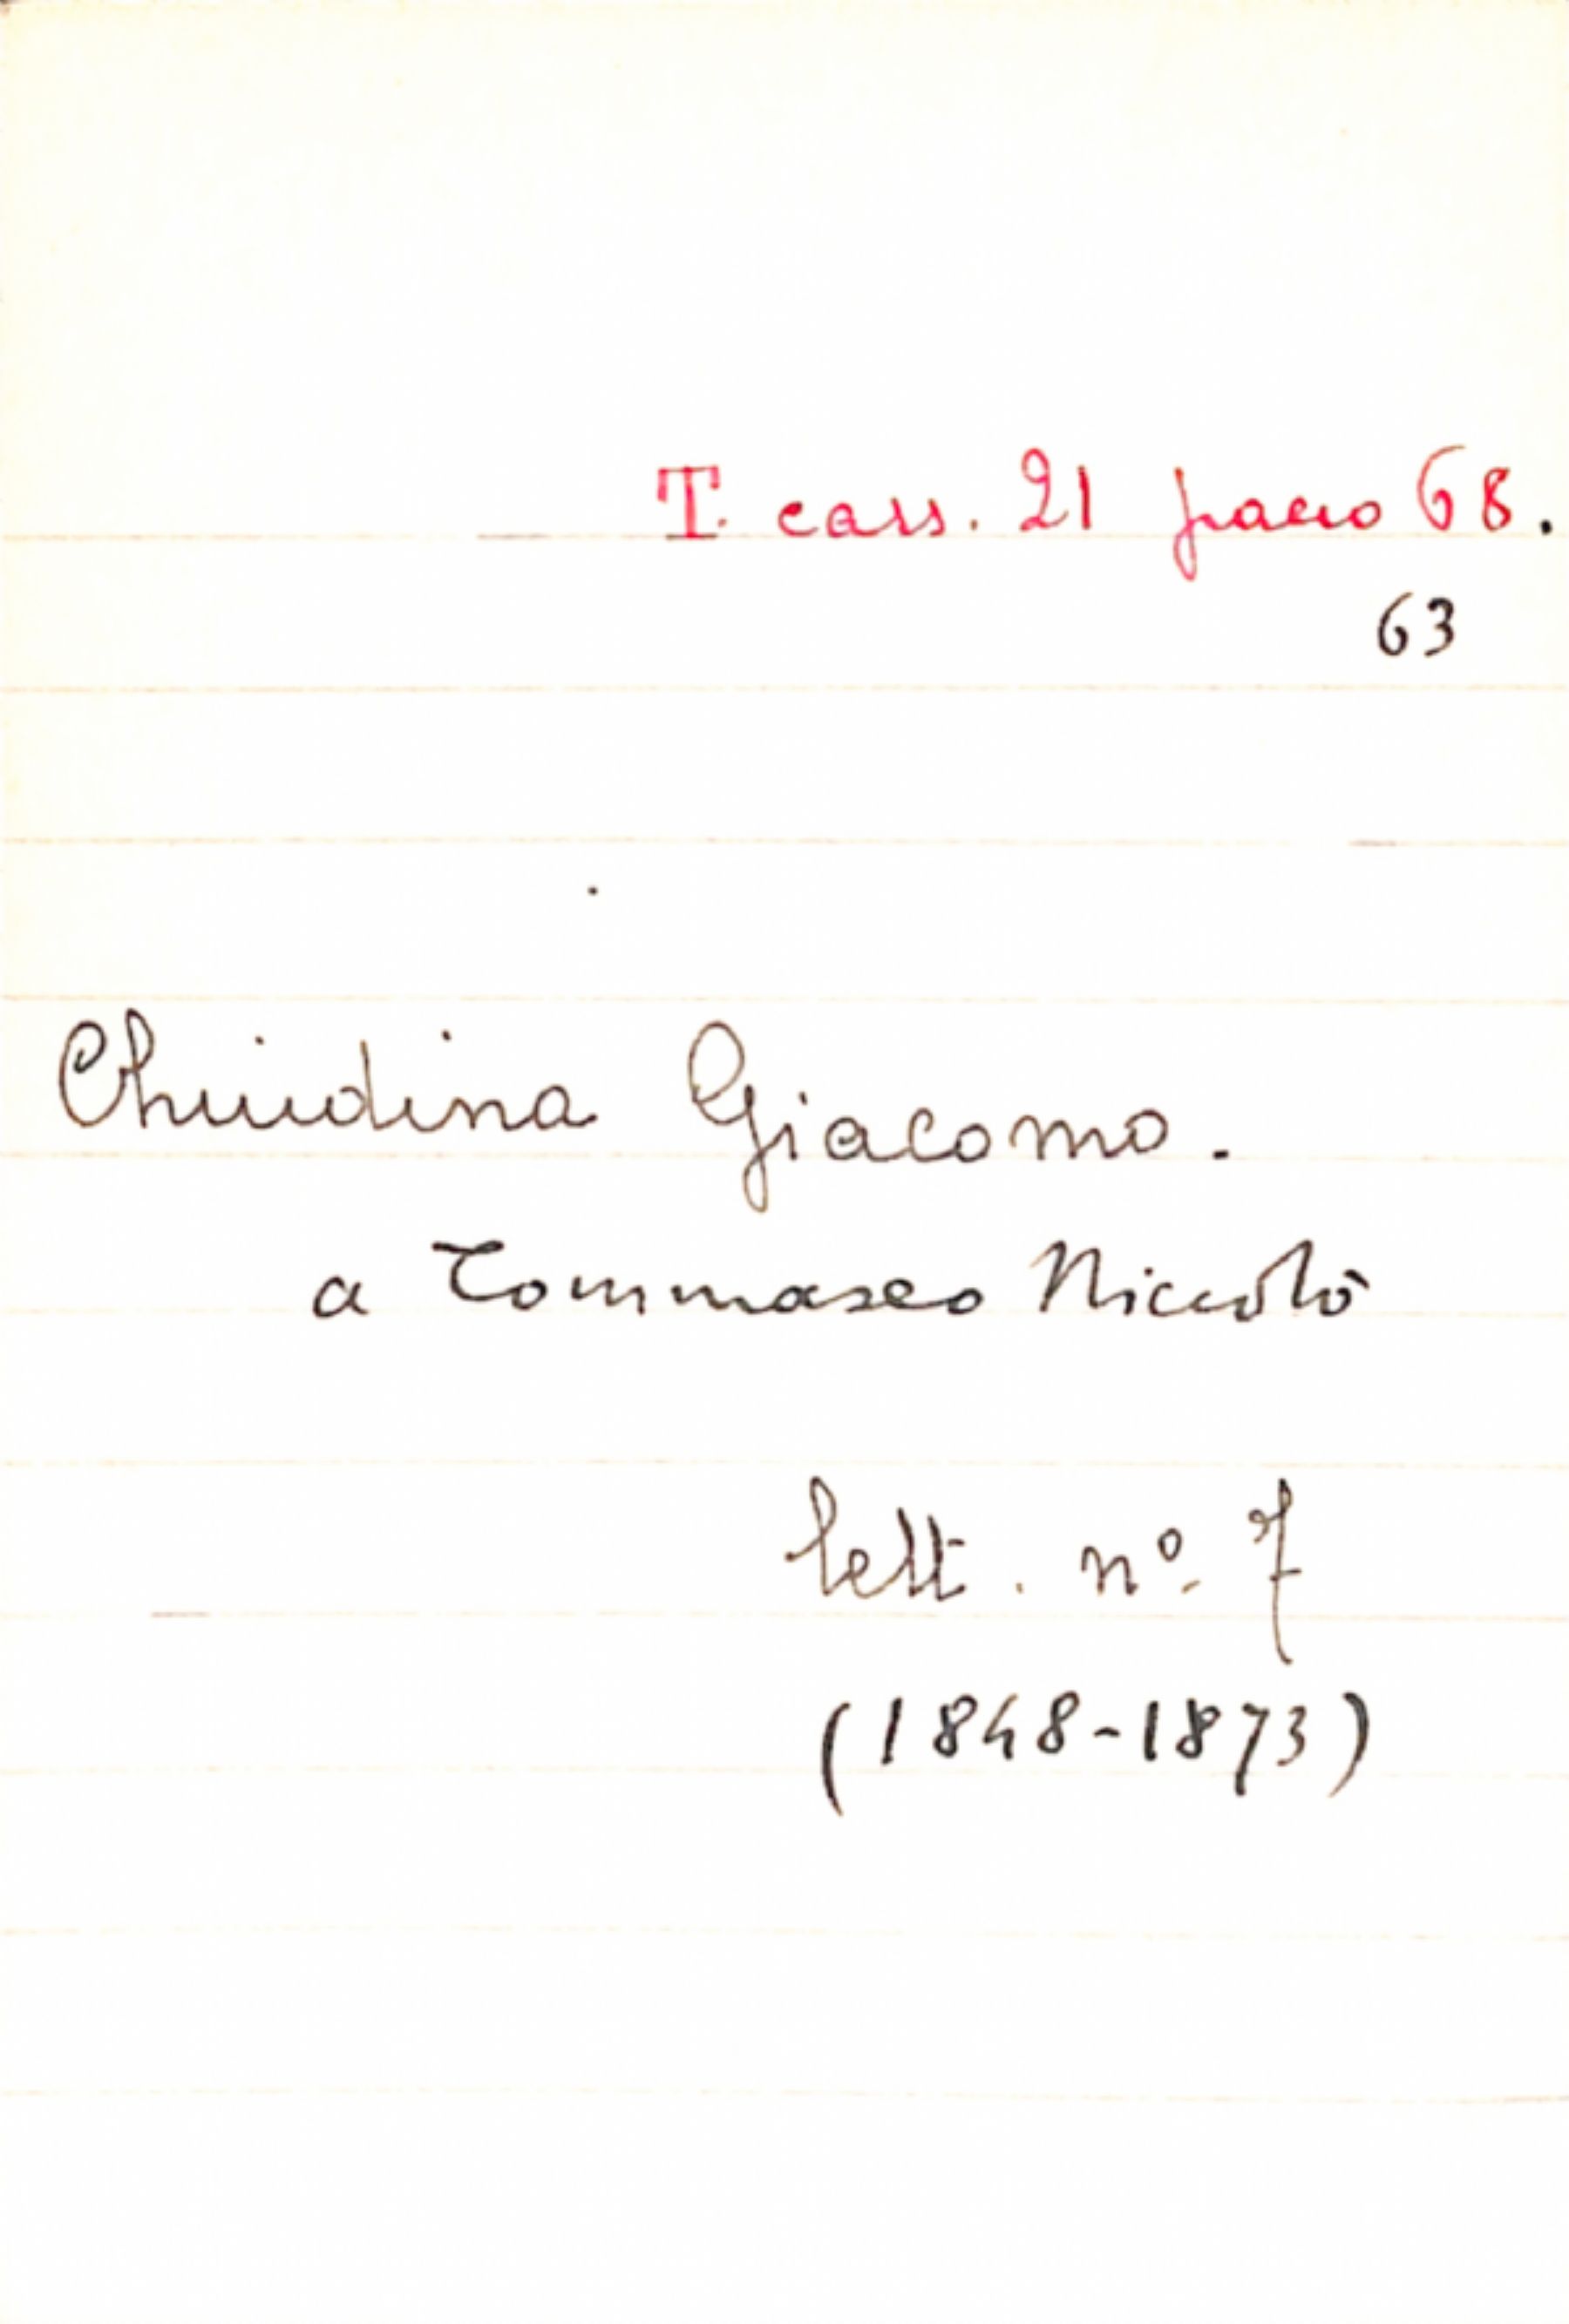 T. cass. 21 pacco 68.
63
Chiudina Giacomo.
a Tommaseo Niccolò
lett. nº 7
(1848-1873)